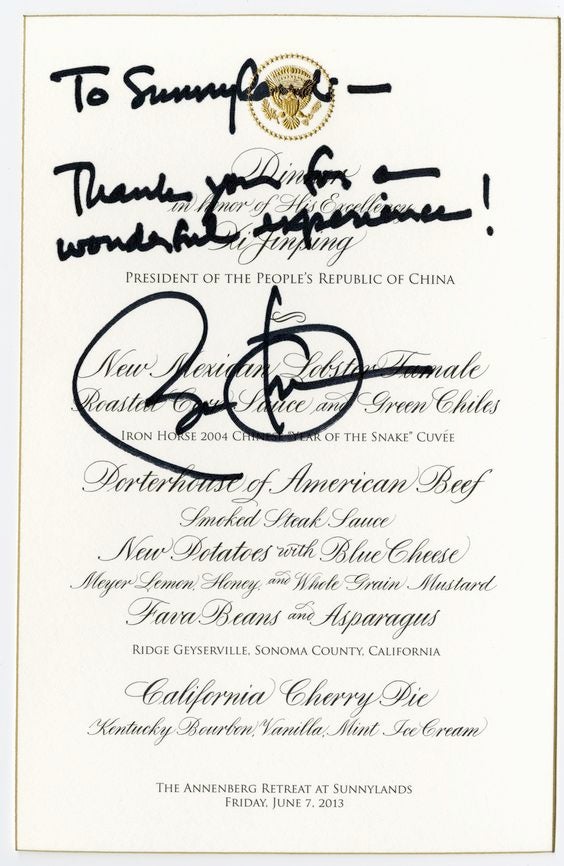 To Sunnylands —
Thank you for a
wonderful experience!
Dinner
in honor of His Excellency
Xi Jinping
PRESIDENT OF THE PEOPLE'S REPUBLIC OF CHINA
New Mexican Lobster Tamale
Roasted Corn Sauce and Green Chiles
IRON HORSE 2004 CHINESE "YEAR OF THE SNAKE" CUVÉE
Porterhouse of American Beef
Smoked Steak Sauce
New Potatoes with Blue Cheese
Meyer Lemon, Honey, and Whole Grain Mustard
Fava Beans and Asparagus
RIDGE GEYSERVILLE, SONOMA COUNTY, CALIFORNIA
California Cherry Pie
Kentucky Bourbon, Vanilla, Mint Ice Cream
THE ANNENBERG RETREAT AT SUNNYLANDS
FRIDAY, JUNE 7, 2013